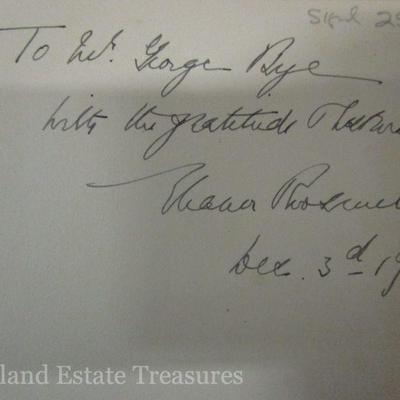 Signed 25
To Mr. George Bye
with the gratitude
Eleanor Roosevel
Dec. 3rd 19
land Estate Treasures